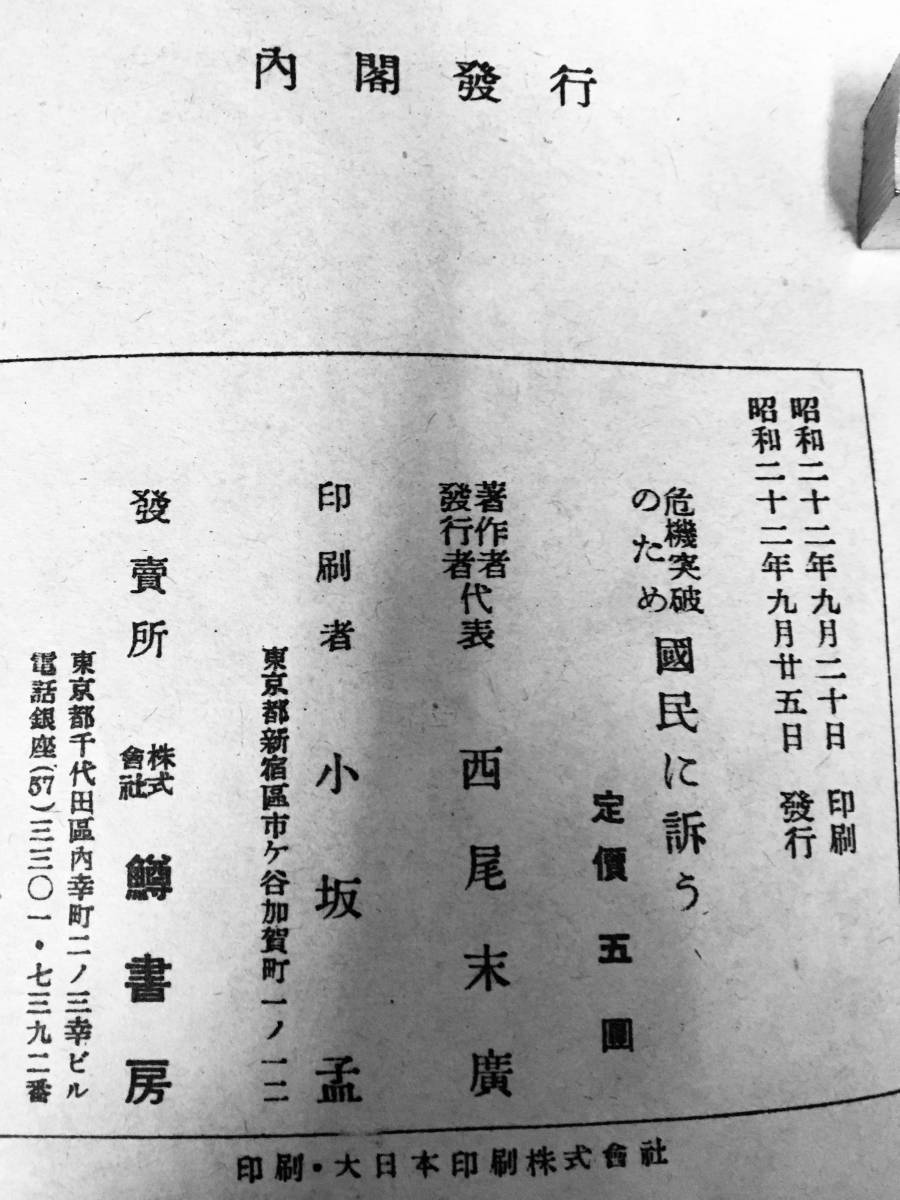 內閣發行
昭和二十二年九月二十日 印刷
昭和二十二年九月廿五日 發行
危機突破のため 國民に訴う
定價五圓
著作者
發行者
代表 西尾末廣
印刷者 小坂孟
東京都新宿區市ケ谷加賀町一ノ一二
發賣所 株式會社 鱒書房
東京都千代田區內幸町二ノ三幸ビル
電話銀座(57)三三〇一・七三九二番
印刷・大日本印刷株式會社